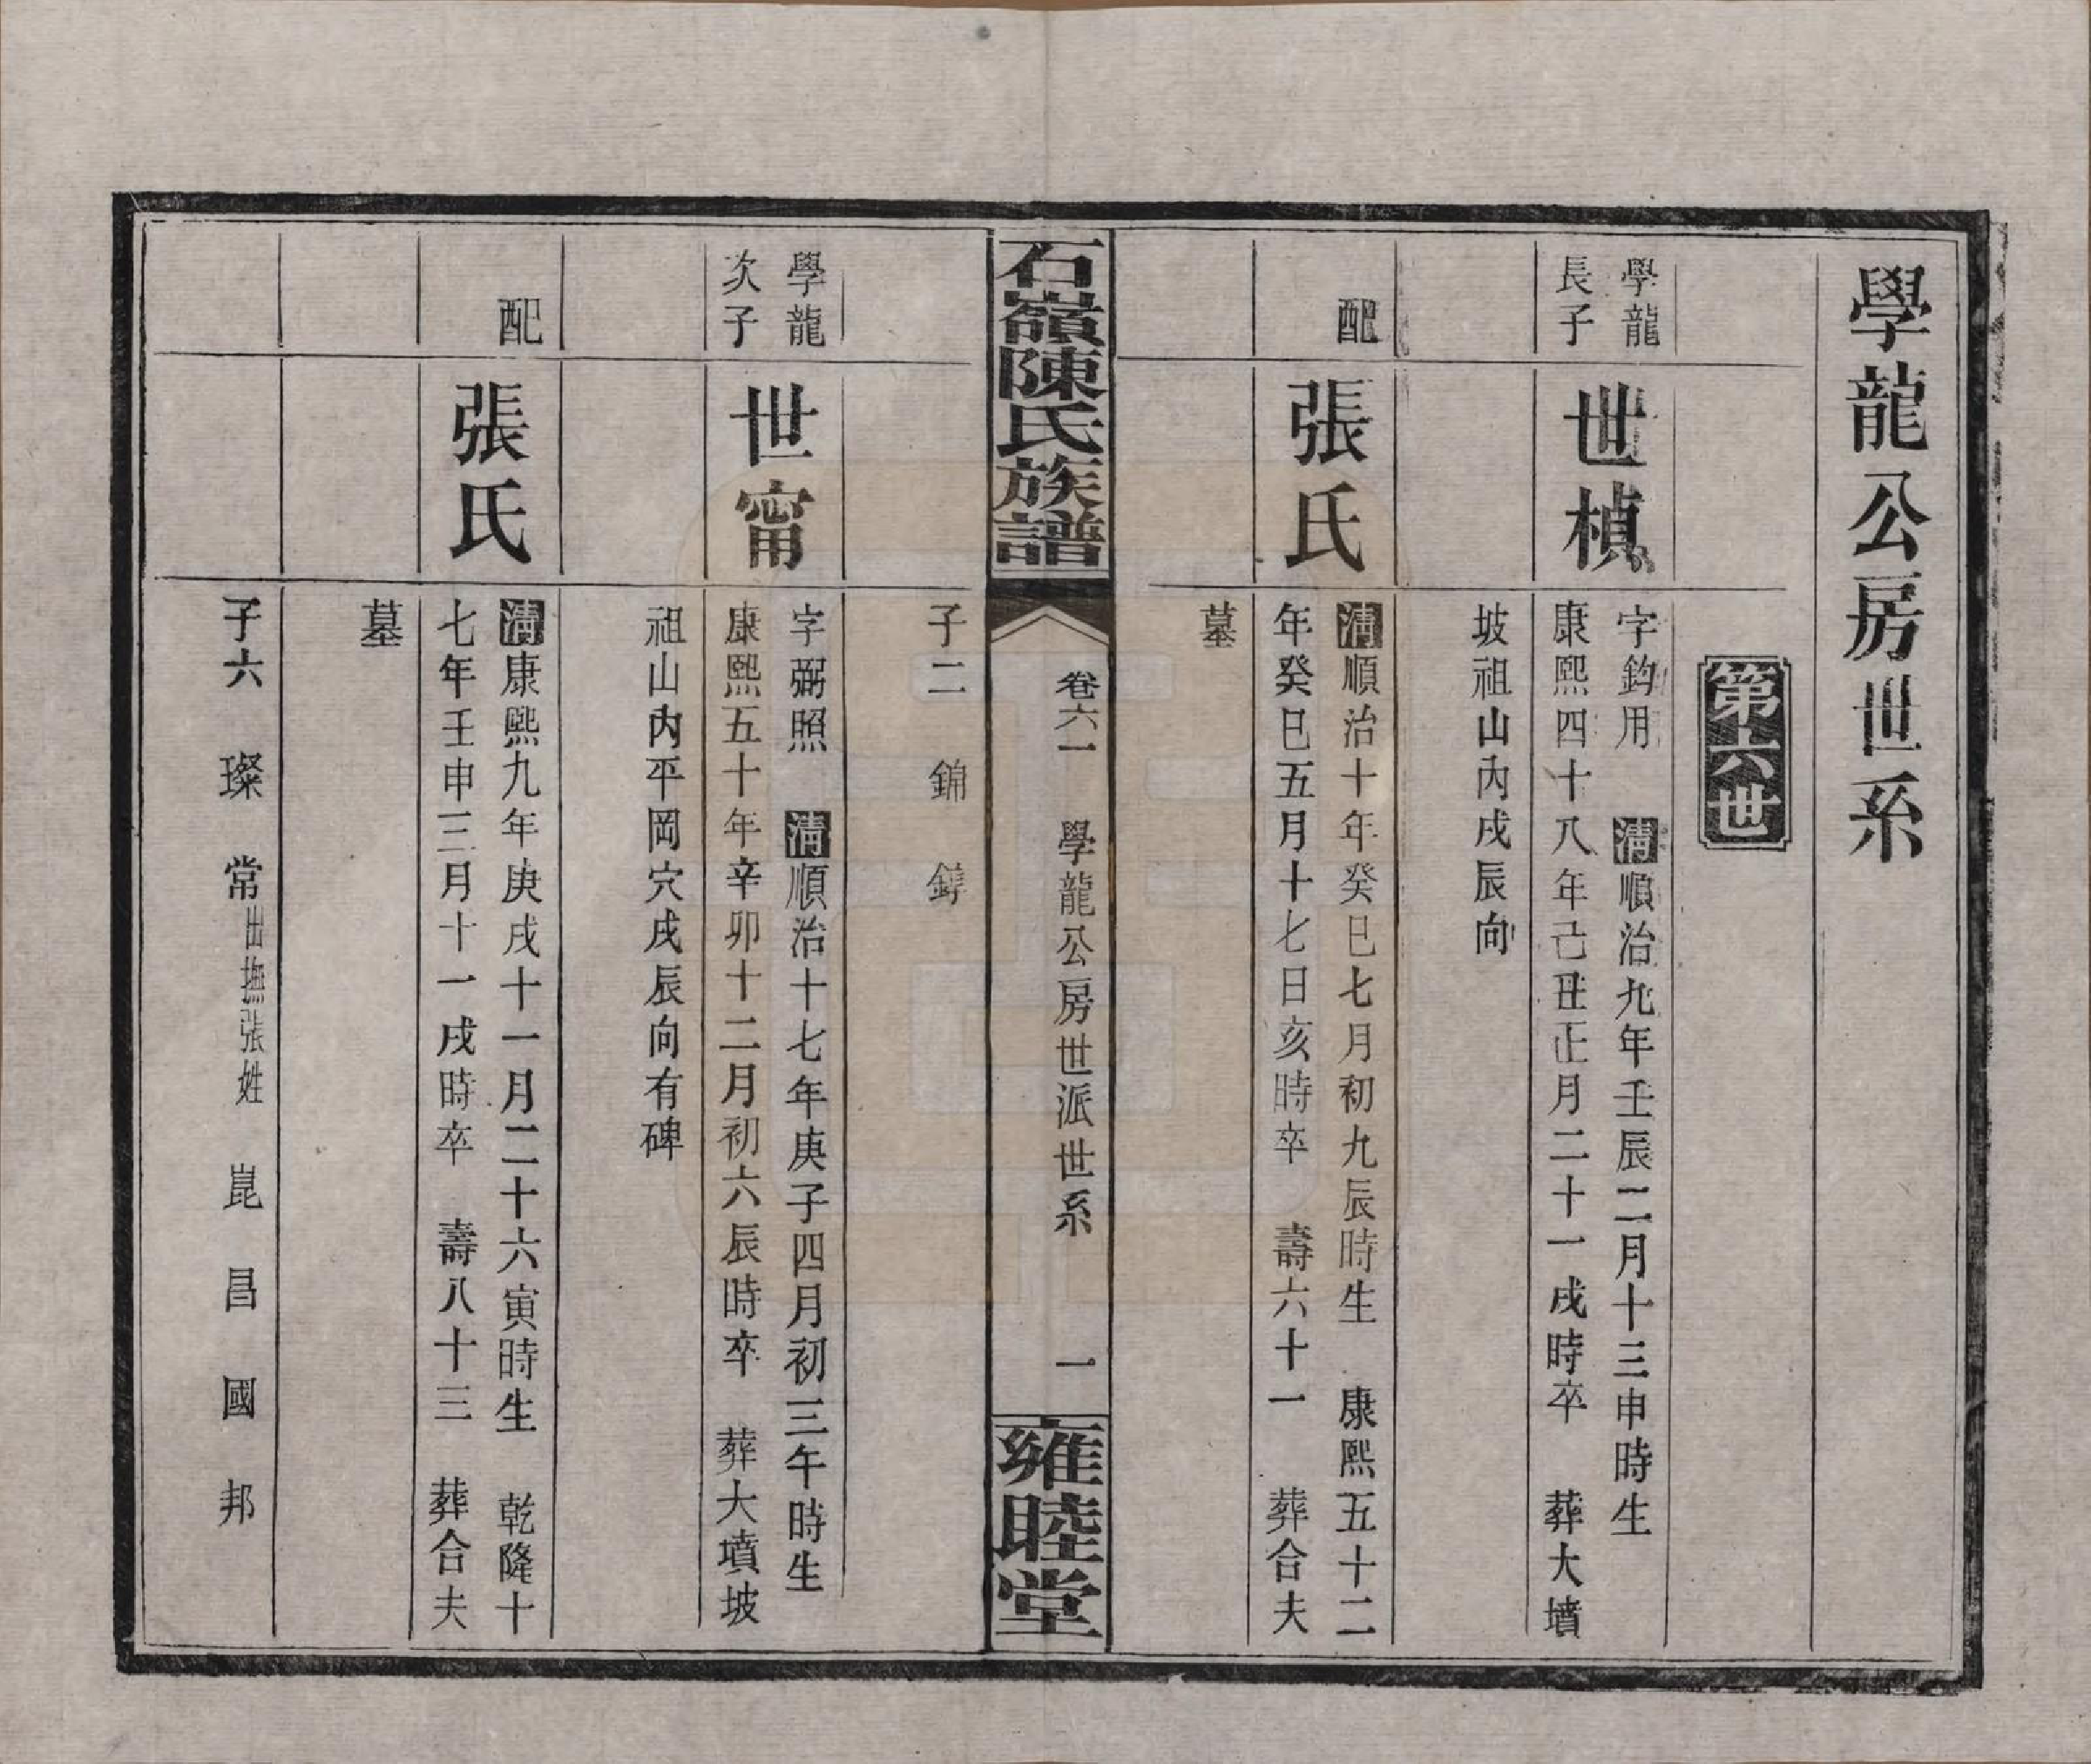 學龍公房世系
第六世
學龍
長子
世楨
字鈞用 清順治九年壬辰二月十三申時生
康熙四十八年己丑正月二十一戌時卒 葬大墳
坡祖山內戌辰向
配
張氏
清順治十年癸巳七月初九辰時生 康熙五十二
年癸巳五月十七日亥時卒 壽六十一 葬合夫
墓
石嶺陳氏族譜
卷六一 學龍公房世派世系 一
雍睦堂
子二 錦 鐸
學龍
次子
世甯
字弼照 清順治十七年庚子四月初三午時生
康熙五十年辛卯十二月初六辰時卒 葬大墳坡
祖山內平岡穴戌辰向有碑
配
張氏
清康熙九年庚戌十一月二十六寅時生 乾隆十
七年壬申三月十一戌時卒 壽八十三 葬合夫
墓
子六 璨 常出撫張姓 崑 昌 國 邦